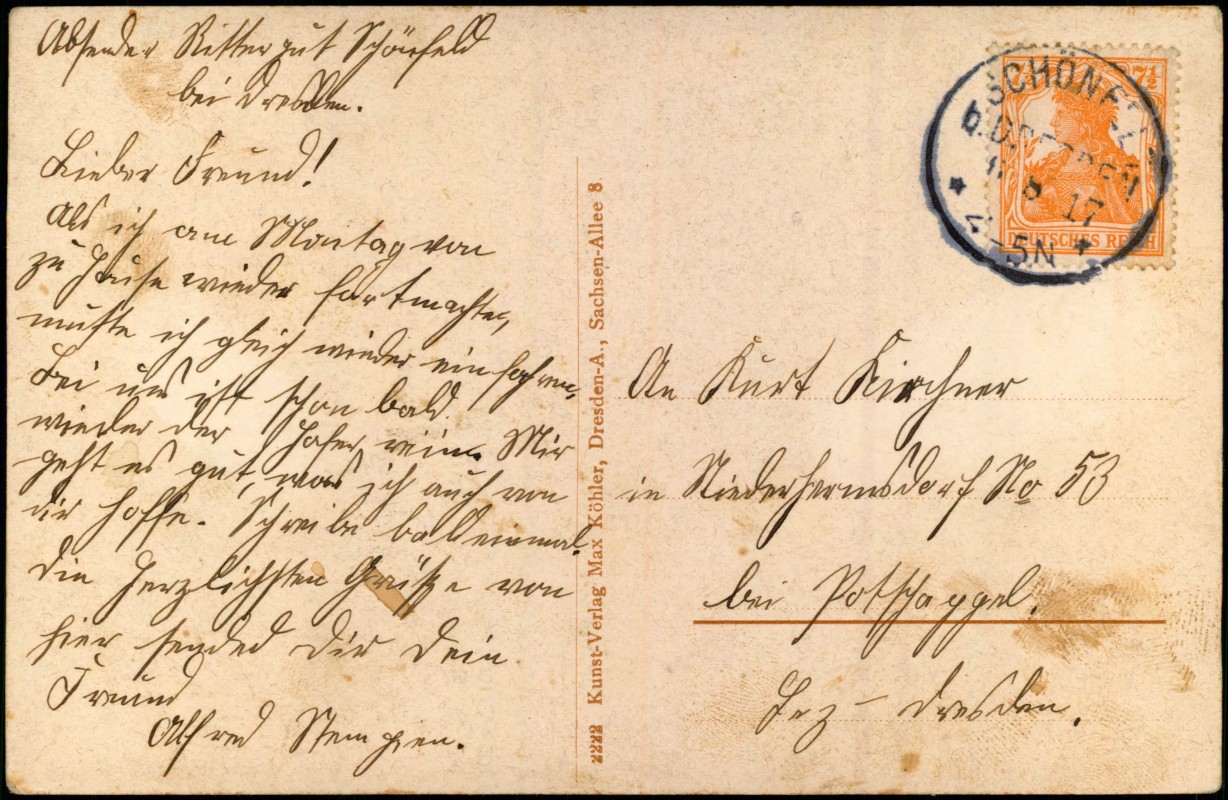 Absender Rittergut Schönfeld
bei Dresden.
Lieber Freund!
Als ich am Montag von
zu Hause wieder fortmachte,
mußte ich gleich wieder einfahren.
Bei uns ist schon bald
wieder der Hafer rein. Mir
geht es gut, was ich auch von
dir hoffe. Schreibe bald einmal.
Die herzlichsten Grüße von
hier sended Dir Dein
Freund
Alfred
2222 Kunst-Verlag Max Köhler, Dresden-A., Sachsen-Allee 8
7½
SCHÖNFELD
b. DRESDEN
8 17
-5N
DEUTSCHES REICH
An Kurt Kirchner
in Niederhermsdorf No 53
bei Potschappel.
Bez - Dresden.